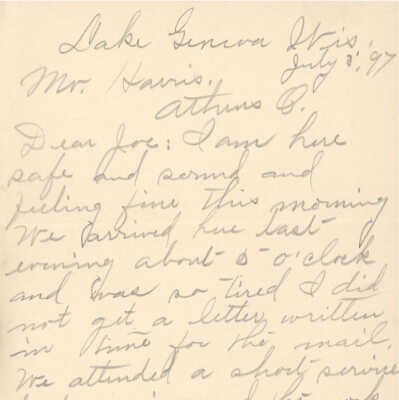 Lake Geneva Wis.
July 3, '97
Mr. Harris,
Athens O.
Dear Joe: I am here
safe and sound and
feeling fine this morning
We arrived here last
evening about 5 o'clock
and was so tired I did
not get a letter written
in time for the mail.
We attended a short service